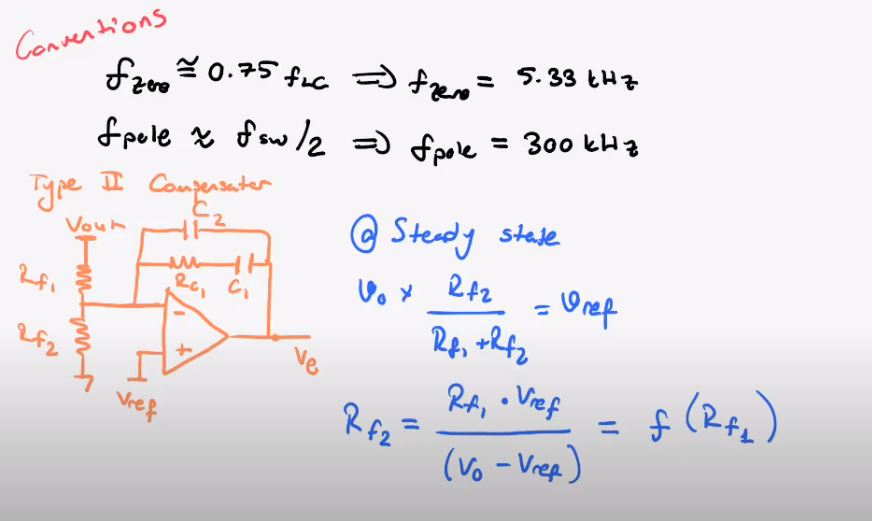 Conventions
f_zero ≅ 0.75 f_LC ⟹ f_zero = 5.33 kHz
f_pole ≈ f_sw/2 ⟹ f_pole = 300 kHz
Type II Compensator
C_2
Vout
R_f1
R_C1 C_1
R_f2
-
+
V_e
V_ref
@ Steady state
v_o × R_f2 / (R_f1 + R_f2) = v_ref
R_f2 = R_f1 · V_ref / (V_o - V_ref) = f (R_f1)